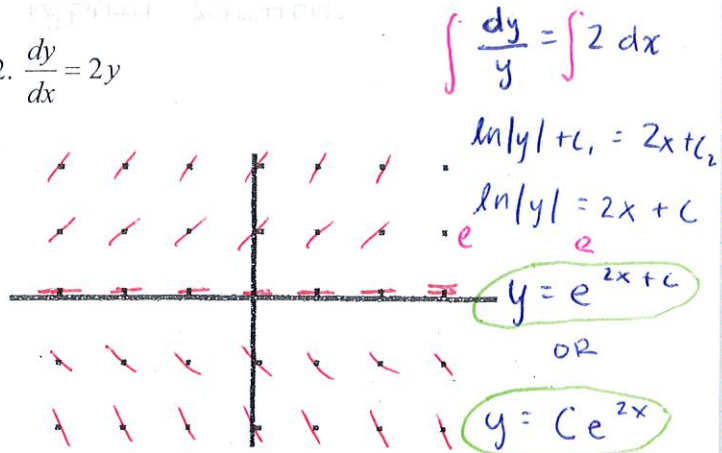 2. dy/dx = 2y
∫ dy/y = ∫ 2 dx
ln|y| + C₁ = 2x + C₂
ln|y| = 2x + C
e e
y = e^(2x + C)
OR
y = Ce^(2x)